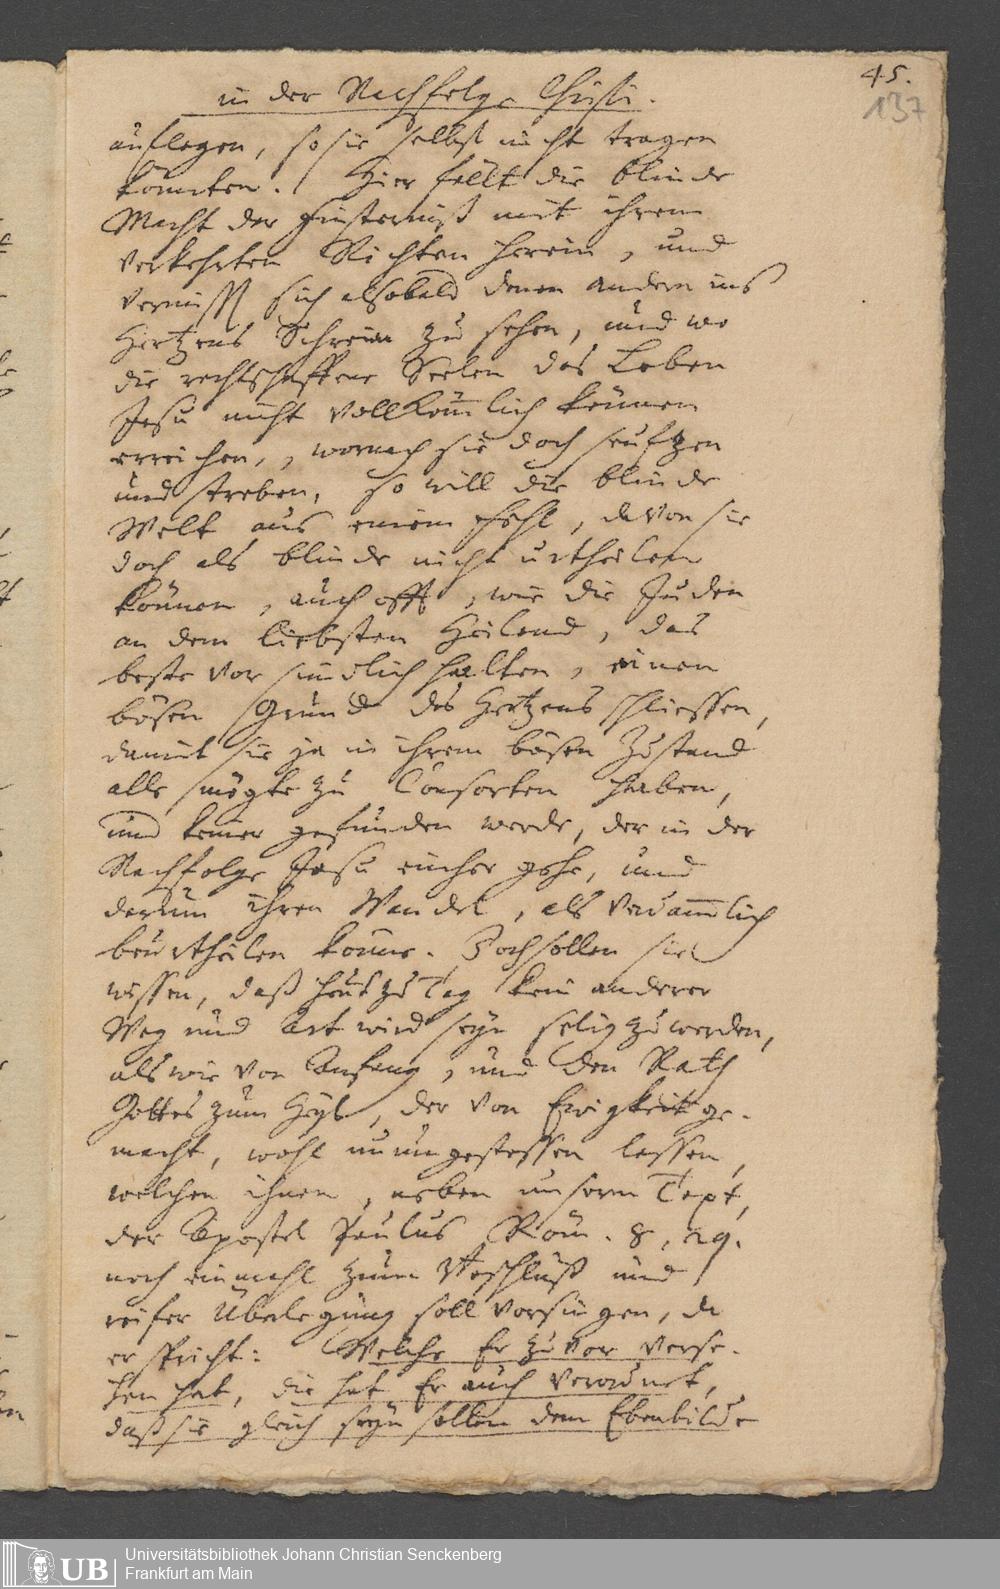 45.
137
in der Nachfolge Christi.
auflegen, so sie selbst nicht tragen
könnten. Hier fällt die blinde
Macht der Finsterniß mit ihrem
verkehrten Richten herein, und
vermißt sich alsobald denen andern ins
Hertzens Schrein zu sehen, und wo
die rechtschaffene Seelen das Leben
Jesu nicht vollkom̄lich können
erreichen, wornach sie doch seufzen
und streben, so will die blinde
Welt aus einem Fehl, davon sie
doch als blinde nicht urtheilen
können, auch offt, wie die Juden
an dem liebsten Heiland, das
beste vor sündlich halten, einen
bösen Grund des Hertzens schliessen,
damit sie ja in ihrem bösen Zustand
alle mögte zu Consorten haben,
und keiner gefunden werde, der in der
Nachfolge Jesu einher gehe, und
darum ihren Wandel, als verdam̄lich
beurtheilen könne. Doch sollen sie
wissen, daß heut zu Tag kein anderer
Weg und Art wird seyn selig zu werden,
als wie von Anfang, und den Rath
Gottes zum Heyl, der von Ewigkeit ge-
macht, wohl unumgestossen lassen,
welchen ihnen, neben unserm Text,
der Apostel Paulus Röm. 8, 29.
noch einmahl zum Beschluß und
reifer Überlegung soll vorsingen, da
er spricht: Welche Er zuvor verse-
hen hat, die hat Er auch verordnet,
daß sie gleich seyn sollen dem Ebenbilde
UB
Universitätsbibliothek Johann Christian Senckenberg
Frankfurt am Main